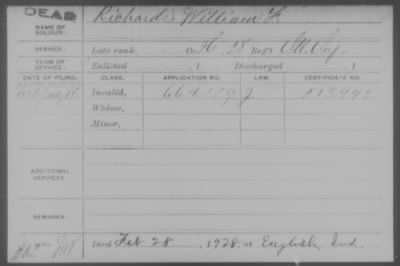 DEAD
Richards William F.
NAME OF SOLDIER:
SERVICE: Late rank, Co. H, 28 Reg't Inf.
TERM OF SERVICE: Enlisted , 1 Discharged , 1
DATE OF FILING. CLASS. APPLICATION NO. LAW. CERTIFICATE NO.
July Invalid, 664.559 J 512.942
Widow,
Minor,
ADDITIONAL SERVICES:
REMARKS:
Died Feb 28, 1928, at English, Ind.